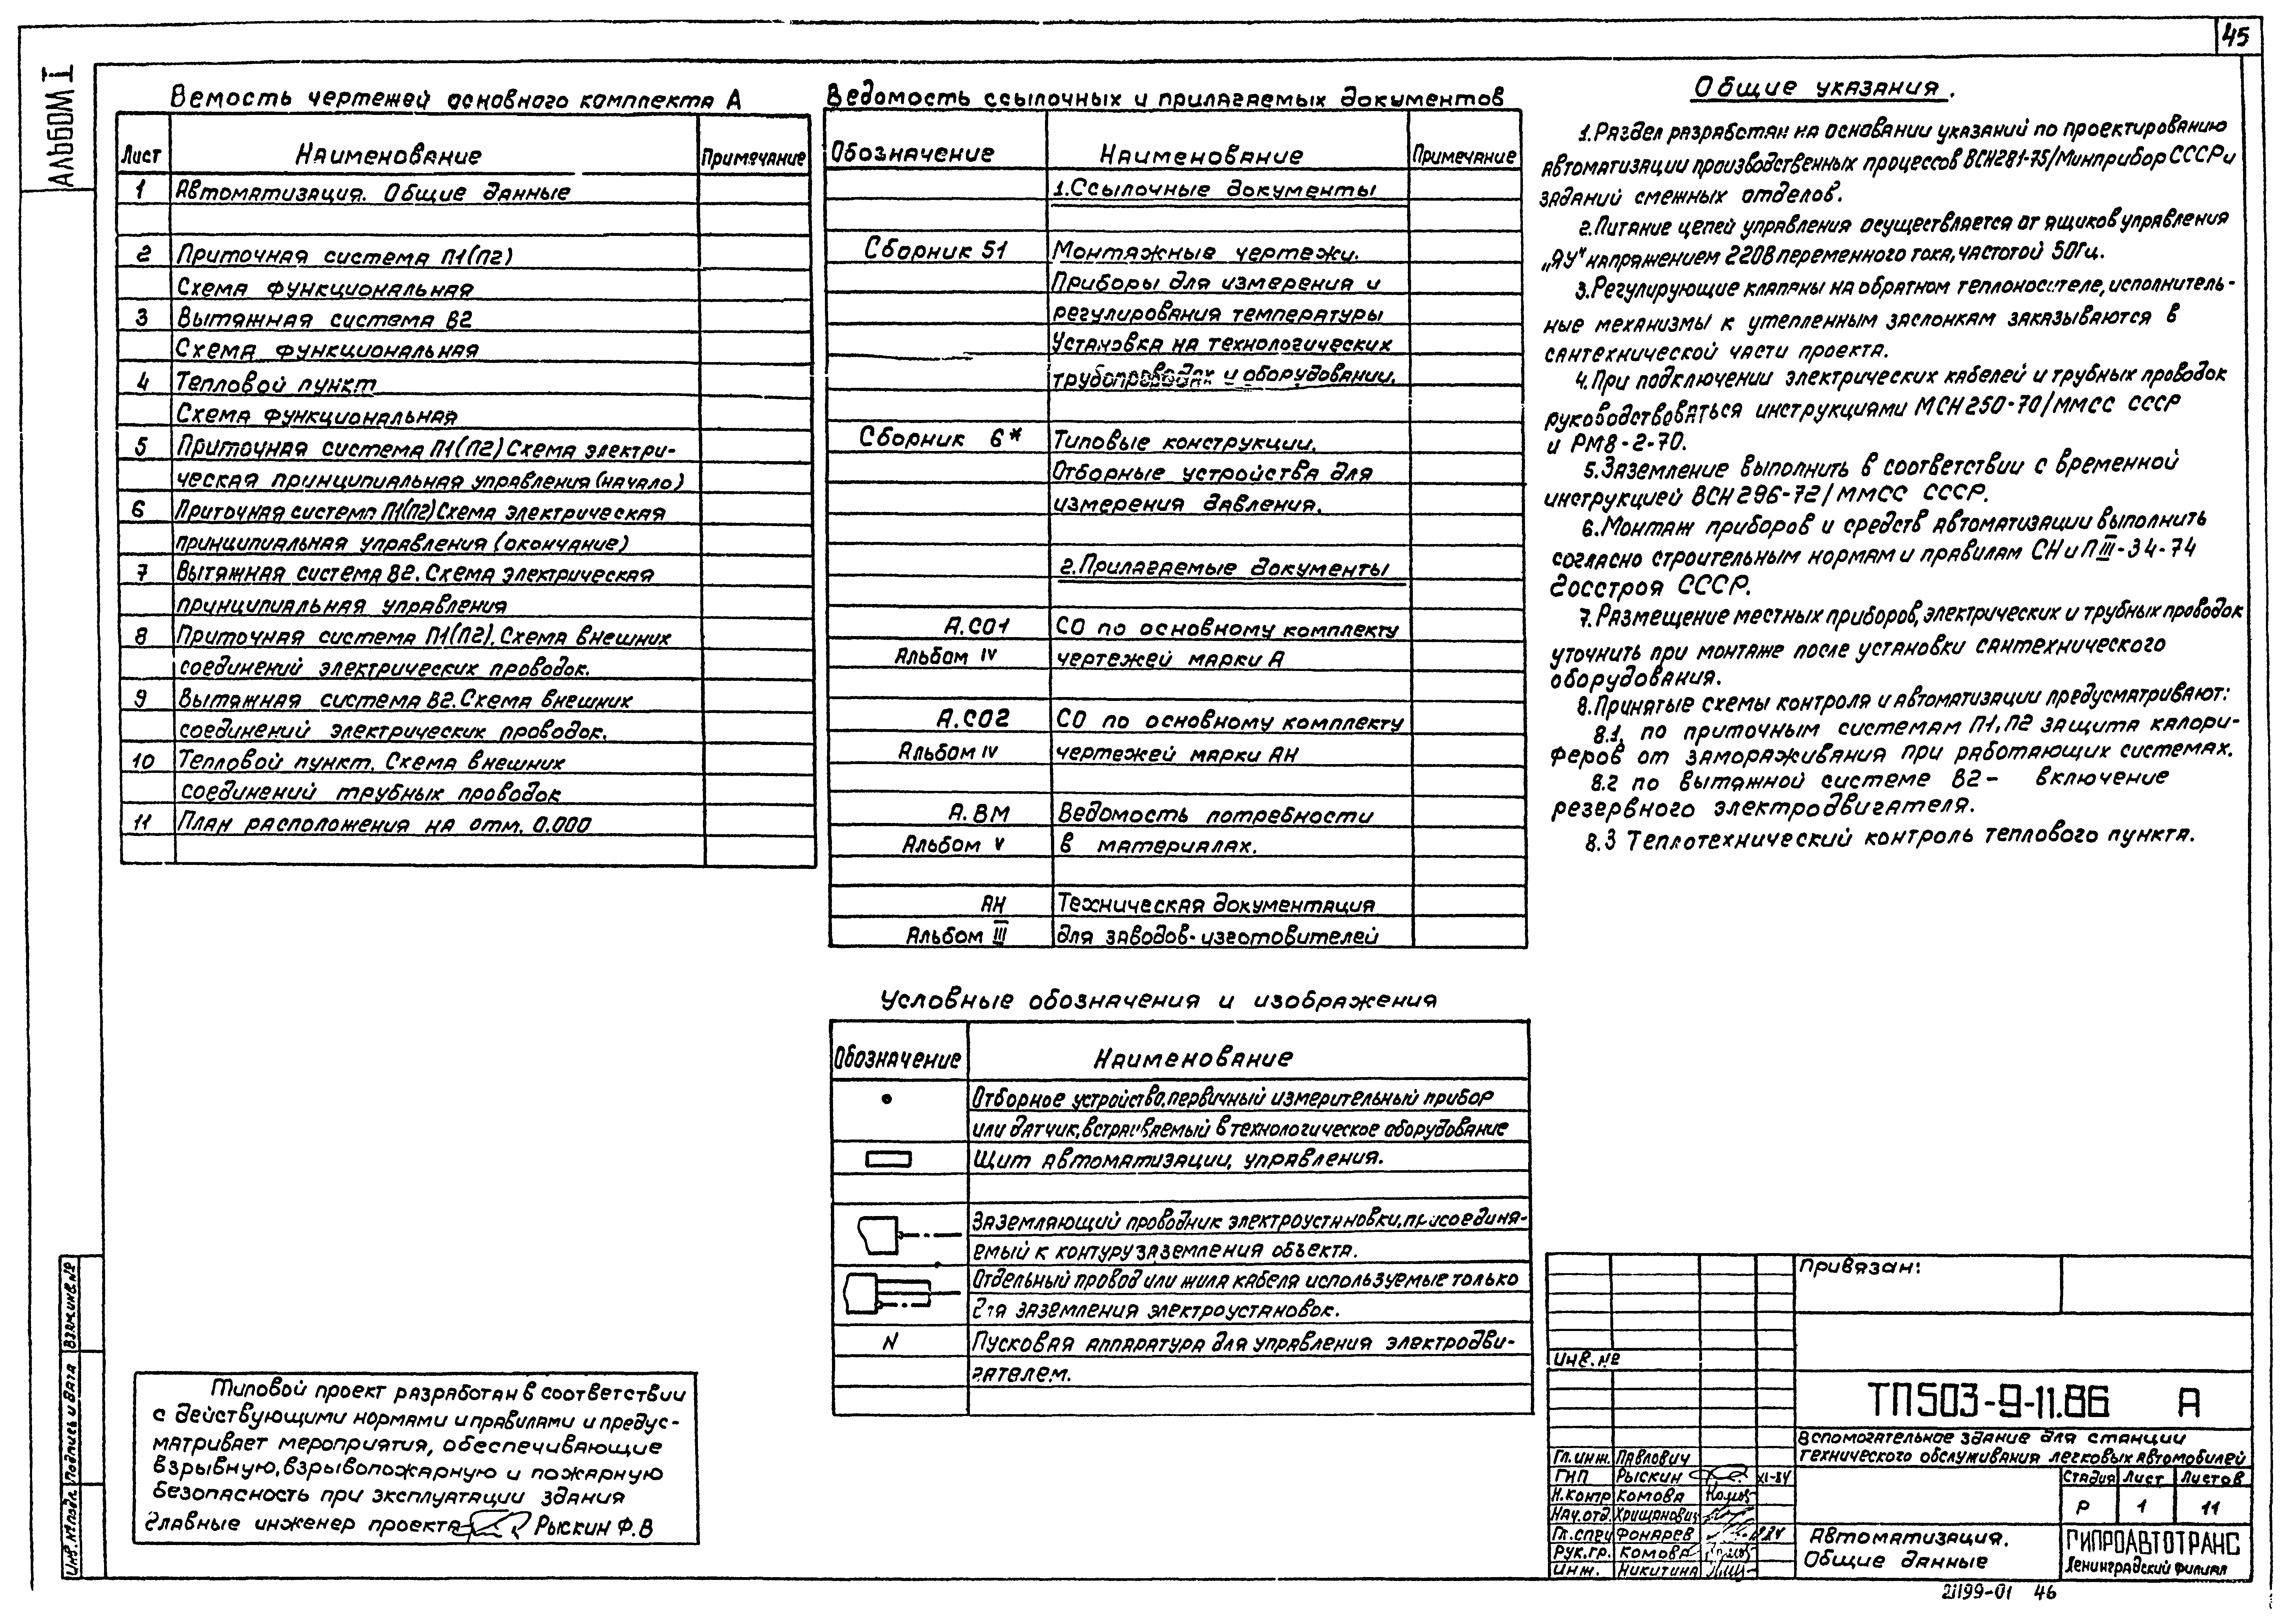 45
АЛЬБОМ I
Вемость чертежей основного комплекта А
Лист Наименование Примечание
1 Автоматизация. Общие данные
2 Приточная система П1(П2)
Схема функциональная
3 Вытяжная система В2
Схема функциональная
4 Тепловой пункт
Схема функциональная
5 Приточная система П1(П2) Схема электри-
ческая принципиальная управления (начало)
6 Приточная система П1(П2) Схема электрическая
принципиальная управления (окончание)
7 Вытяжная система В2. Схема электрическая
принципиальная управления
8 Приточная система П1(П2). Схема внешних
соединений электрических проводок.
9 Вытяжная система В2. Схема внешних
соединений электрических проводок.
10 Тепловой пункт. Схема внешних
соединений трубных проводок
11 План расположения на отм. 0.000
Ведомость ссылочных и прилагаемых документов
Обозначение Наименование Примечание
1. Ссылочные документы
Сборник 51 Монтажные чертежи.
Приборы для измерения и
регулирования температуры
Установка на технологических
трубопроводах и оборудовании.
Сборник 6* Типовые конструкции.
Отборные устройства для
измерения давления.
2. Прилагаемые документы
А.СО1 СО по основному комплекту
Альбом IV чертежей марки А
А.СО2 СО по основному комплекту
Альбом IV чертежей марки АН
А.ВМ Ведомость потребности
Альбом V в материалах.
АН Техническая документация
Альбом III для заводов-изготовителей
Условные обозначения и изображения
Обозначение Наименование
Отборное устройство, первичный измерительный прибор
или датчик, встраиваемый в технологическое оборудование
Щит автоматизации, управления.
Заземляющий проводник электроустановки, присоединя-
емый к контуру заземления объекта.
Отдельный провод или жила кабеля используемые только
для заземления электроустановок.
N Пусковая аппаратура для управления электродви-
гателем.
Общие указания.
1. Раздел разработан на основании указаний по проектированию
автоматизации производственных процессов ВСН281-75/Минприбор СССР и
заданий смежных отделов.
2. Питание цепей управления осуществляется от ящиков управления
„ЯУ" напряжением 220В переменного тока, частотой 50Гц.
3. Регулирующие клапаны на обратном теплоносителе, исполнитель-
ные механизмы к утепленным заслонкам заказываются в
сантехнической части проекта.
4. При подключении электрических кабелей и трубных проводок
руководствоваться инструкциями МСН250-70/ММСС СССР
и РМ8-2-70.
5. Заземление выполнить в соответствии с временной
инструкцией ВСН296-72/ММСС СССР.
6. Монтаж приборов и средств автоматизации выполнить
согласно строительным нормам и правилам СНиП III-34-74
Госстроя СССР.
7. Размещение местных приборов, электрических и трубных проводок
уточнить при монтаже после установки сантехнического
оборудования.
8. Принятые схемы контроля и автоматизации предусматривают:
8.1. по приточным системам П1, П2 защита калори-
феров от замораживания при работающих системах.
8.2 по вытяжной системе В2 - включение
резервного электродвигателя.
8.3 Теплотехнический контроль теплового пункта.
Типовой проект разработан в соответствии
с действующими нормами и правилами и предус-
матривает мероприятия, обеспечивающие
взрывную, взрывопожарную и пожарную
безопасность при эксплуатации здания
Главные инженер проекта Рыскин Ф.В
Взам.инв.№
Подпись и дата
Инв.№ подл.
Привязан:
Инв.№
ТП503-9-11.86 А
Вспомогательное здание для станции
технического обслуживания легковых автомобилей
Гл.инж. Павлович
ГИП Рыскин XI-84
Н.контр Комова
Нач.отд. Хришанович
Гл.спец Фонарев
Рук.гр. Комова
Инж. Никитина
Стадия Лист Листов
Р 1 11
Автоматизация.
Общие данные
ГИПРОАВТОТРАНС
Ленинградский филиал
21199-01 46